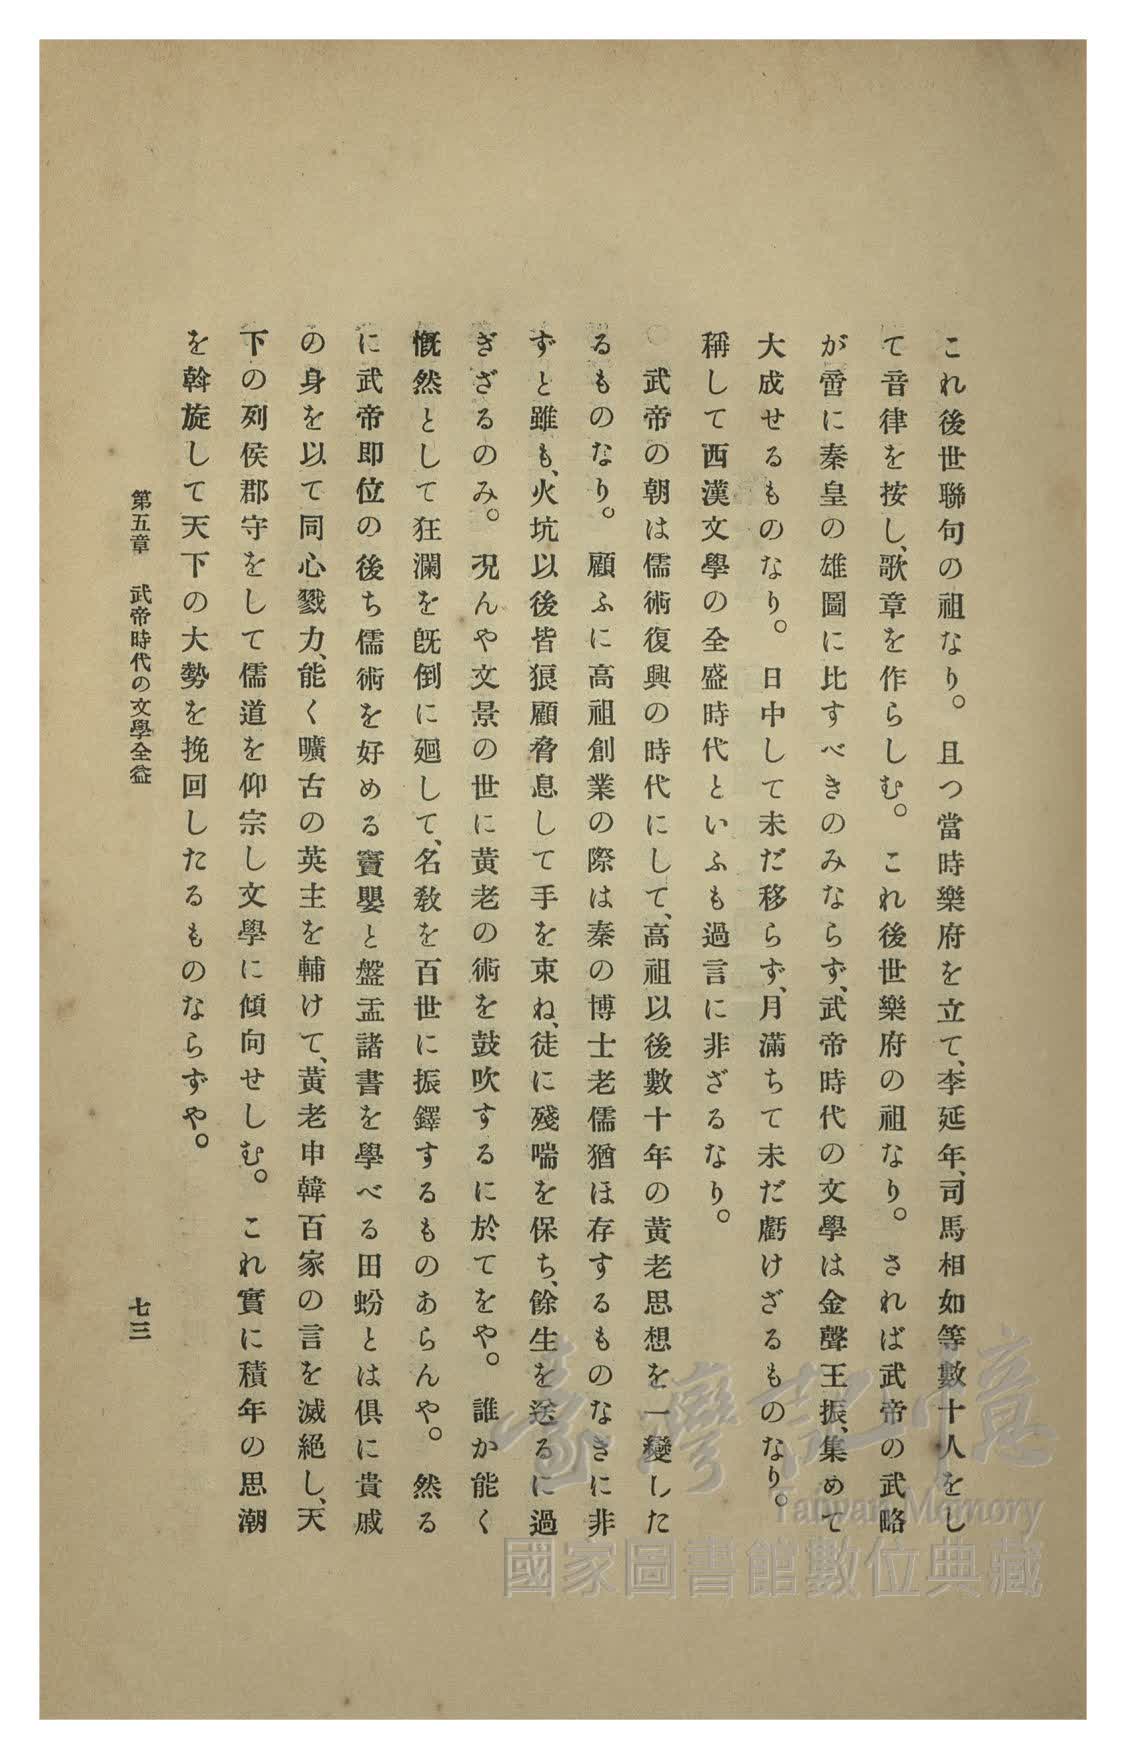 これ後世聯句の祖なり。且つ當時樂府を立て、李延年、司馬相如等數十人をし
て音律を按し、歌章を作らしむ。これ後世樂府の祖なり。されば武帝の武略
が啻に秦皇の雄圖に比すべきのみならず、武帝時代の文學は金聲王振、集めて
大成せるものなり。日中して未だ移らず、月滿ちて未だ虧けざるものなり。
稱して西漢文學の全盛時代といふも過言に非ざるなり。
武帝の朝は儒術復興の時代にして、高祖以後數十年の黃老思想を一變した
るものなり。顧ふに高祖創業の際は秦の博士老儒猶ほ存するものなきに非
ずと雖も、火坑以後皆狼顧脅息して手を束ね、徒に殘喘を保ち、餘生を送るに過
ぎざるのみ。况んや文景の世に黃老の術を鼓吹するに於てをや。誰か能く
慨然として狂瀾を旣倒に廻して、名敎を百世に振鐸するものあらんや。然る
に武帝卽位の後ち儒術を好める竇嬰と盤盂諸書を學べる田蚡とは俱に貴戚
の身を以て同心戮力、能く曠古の英主を輔けて、黃老申韓百家の言を滅絕し、天
下の列侯郡守をして儒道を仰宗し文學に傾向せしむ。これ實に積年の思潮
を斡旋して天下の大勢を挽回したるものならずや。
第五章 武帝時代の文學全盛
七三
臺灣記憶
Taiwan Memory
國家圖書館數位典藏